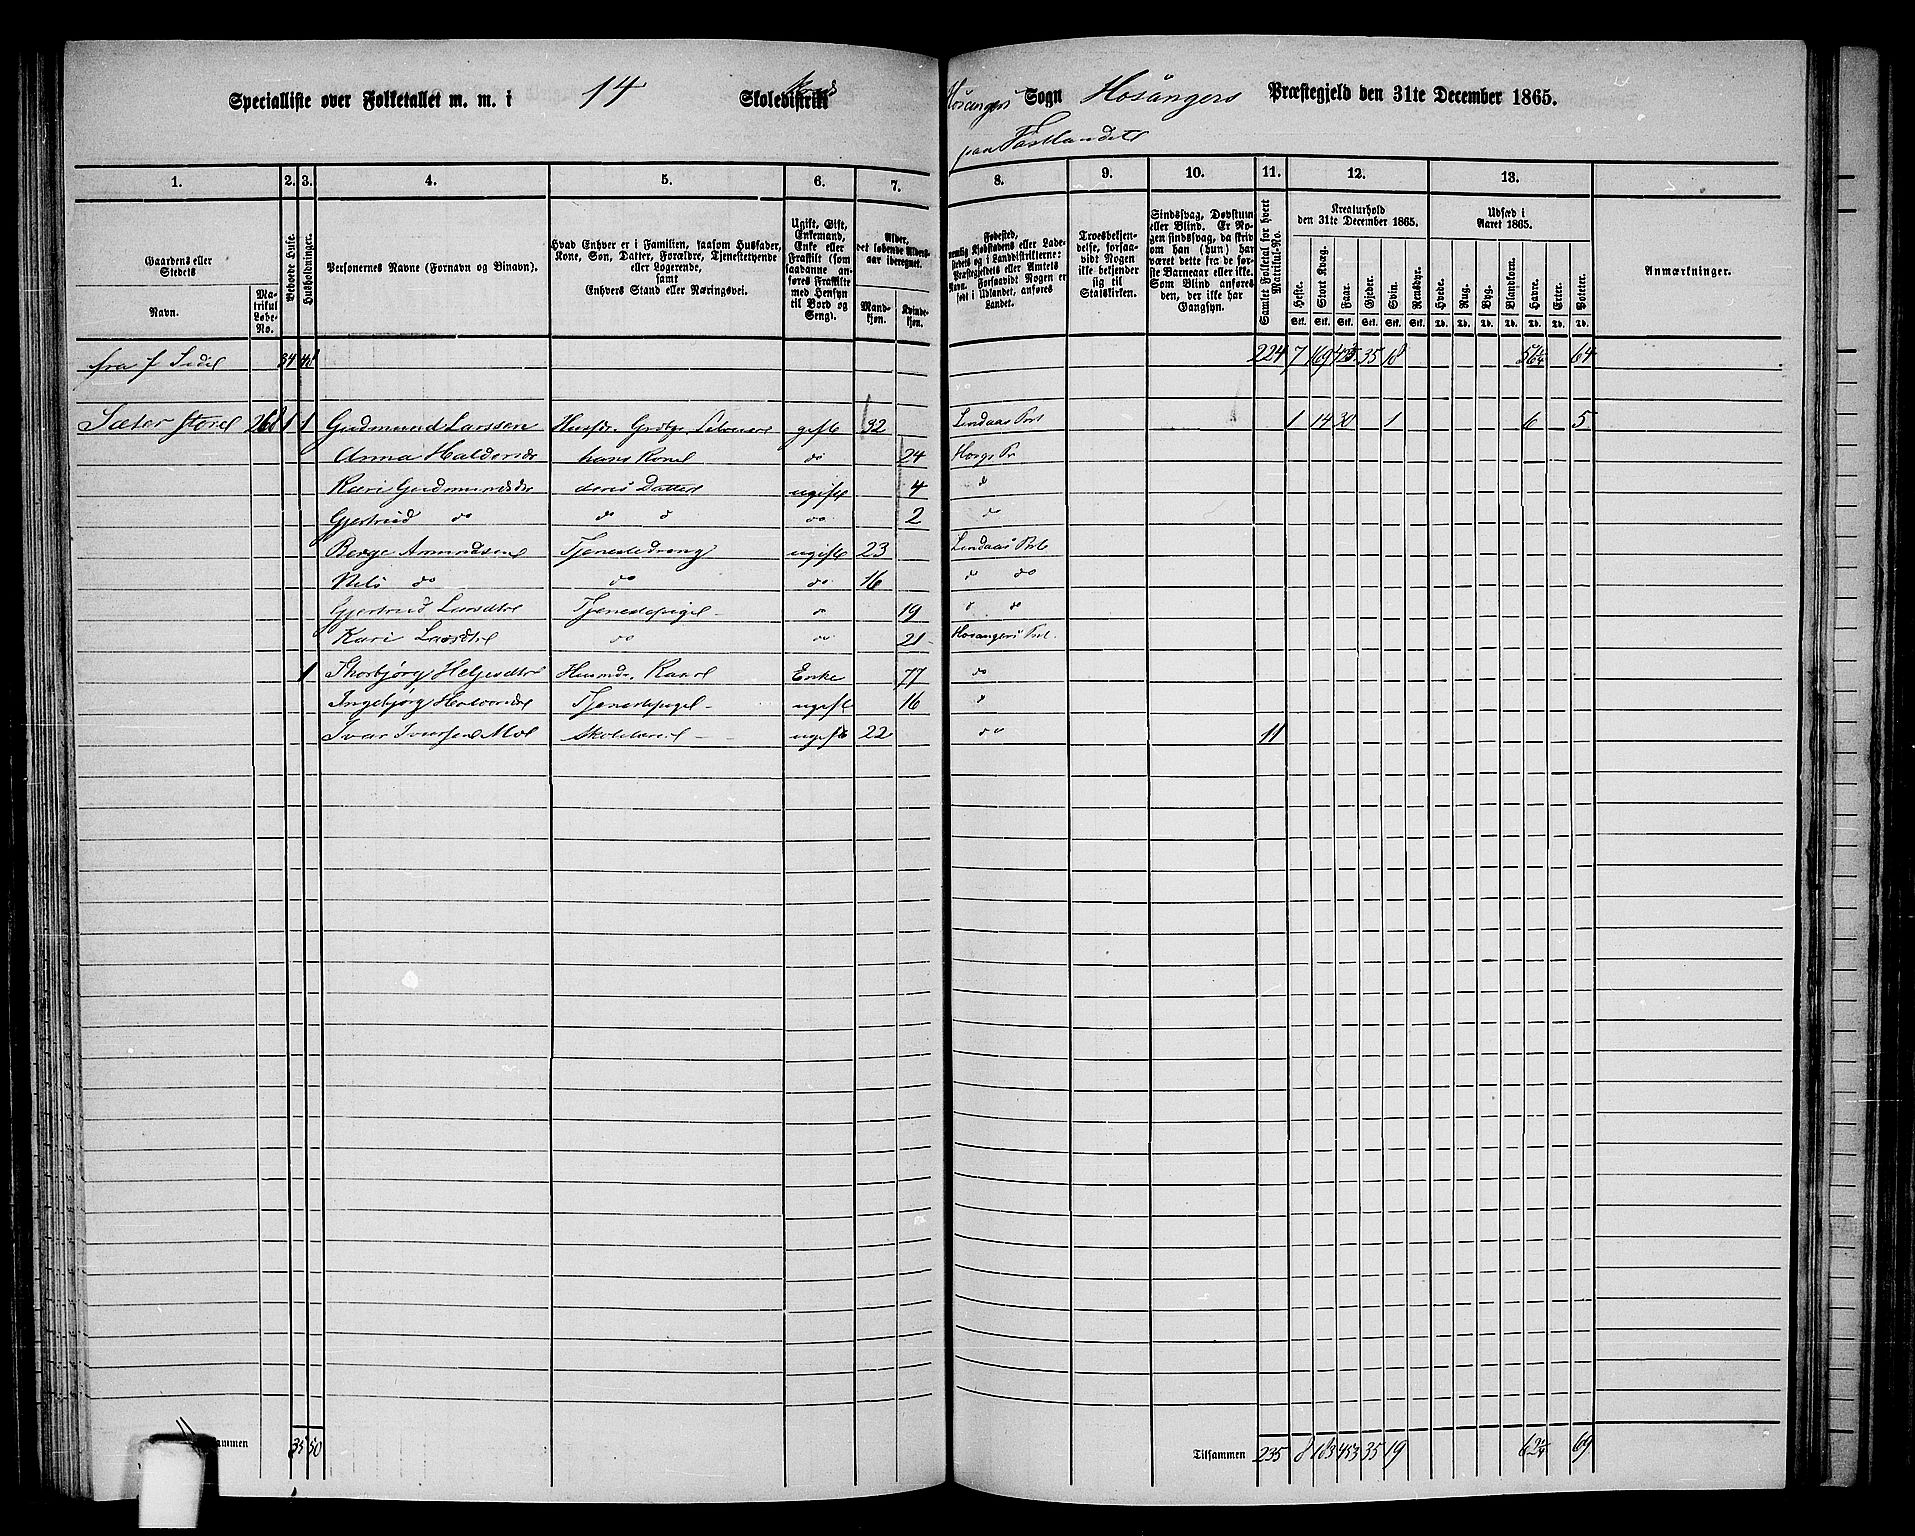 Specialliste over Folketallet m. m. i 14 Skoledistrikt Hosangers Sogn Hosangers Præstegjeld den 31te December 1865.
paa Fastlandet
1. 2. 3. 4. 5. 6. 7. 8. 9. 10. 11. 12. 13.
Gaardens eller Stedets
Navn.
Matrikul Løbe-No.
Beboede Huse.
Husholdninger.
Personernes Navne (Fornavn og Binavn).
Hvad Enhver er i Familien, saasom Husfader,
Kone, Søn, Datter, Forældre, Tjenestetyende
eller Logerende,
samt
Enhvers Stand eller Næringsvei.
Ugift, Gift,
Enkemand,
Enke eller
Fraskilt (som
saadanne an-
føres Fraskilte
med Hensyn
til Bord og
Seng).
Alder,
det løbende Alders-
aar iberegnet.
Mand-
kjøn.
Kvinde-
kjøn.
Fødested,
nemlig Kjøbstadens eller Lade-
stedets og i Landdistrikterne:
Præstegjeldets eller Amtets
Navn. Forsaavidt Nogen er
født i Udlandet, anføres
Landet.
Troesbekjen-
delse, forsaa-
vidt Nogen
ikke bekjender
sig til
Statskirken.
Sindssvag, Døvstum
eller Blind. Er No-
gen sindssvag, da skriv
om han (hun) har
været dette fra de før-
ste Barneaar eller ikke.
Som Blind anføres
den, der ikke har
Gangsyn.
Samlet Folketal for hvert Matrikul-No.
Kreaturhold
den 31te December 1865.
Heste. Stort Kvæg. Faar. Gjeder. Svin. Rensdyr.
Stk. Stk. Stk. Stk. Stk. Stk.
Udsæd i
Aaret 1865.
Hvede. Rug. Byg. Blandkorn. Havre. Erter. Poteter.
Td. Td. Td. Td. Td. Td. Td.
Anmærkninger.
fra f Side 34 48 224 7 169 35 18 64
Sæter store 260 1 1 Gudmund Larssen gift 32 Lindaas 1 14 30 1 6 5
Anna hans Kone do 24
Kari Gudmundsdtr deres Datter ugift 4 do
Gjertrud do do do do 2 do
Berge Amundsen Tjenestedreng ugift 23 Lindaas
Nils do do do 16 do do
Gjertrud Larsdtr Tjenestepige do 19 do do
Kari Larsdtr do do 21 Hosangers
1 Thorbjørg Helgesdtr Enke 77 do
Ingebjørg Tjenestepige ugift 16 do
Ivar Iversen ugift 22 do 11
Tilsammen 35 50 Tilsammen 235 8 183 453 35 19 69